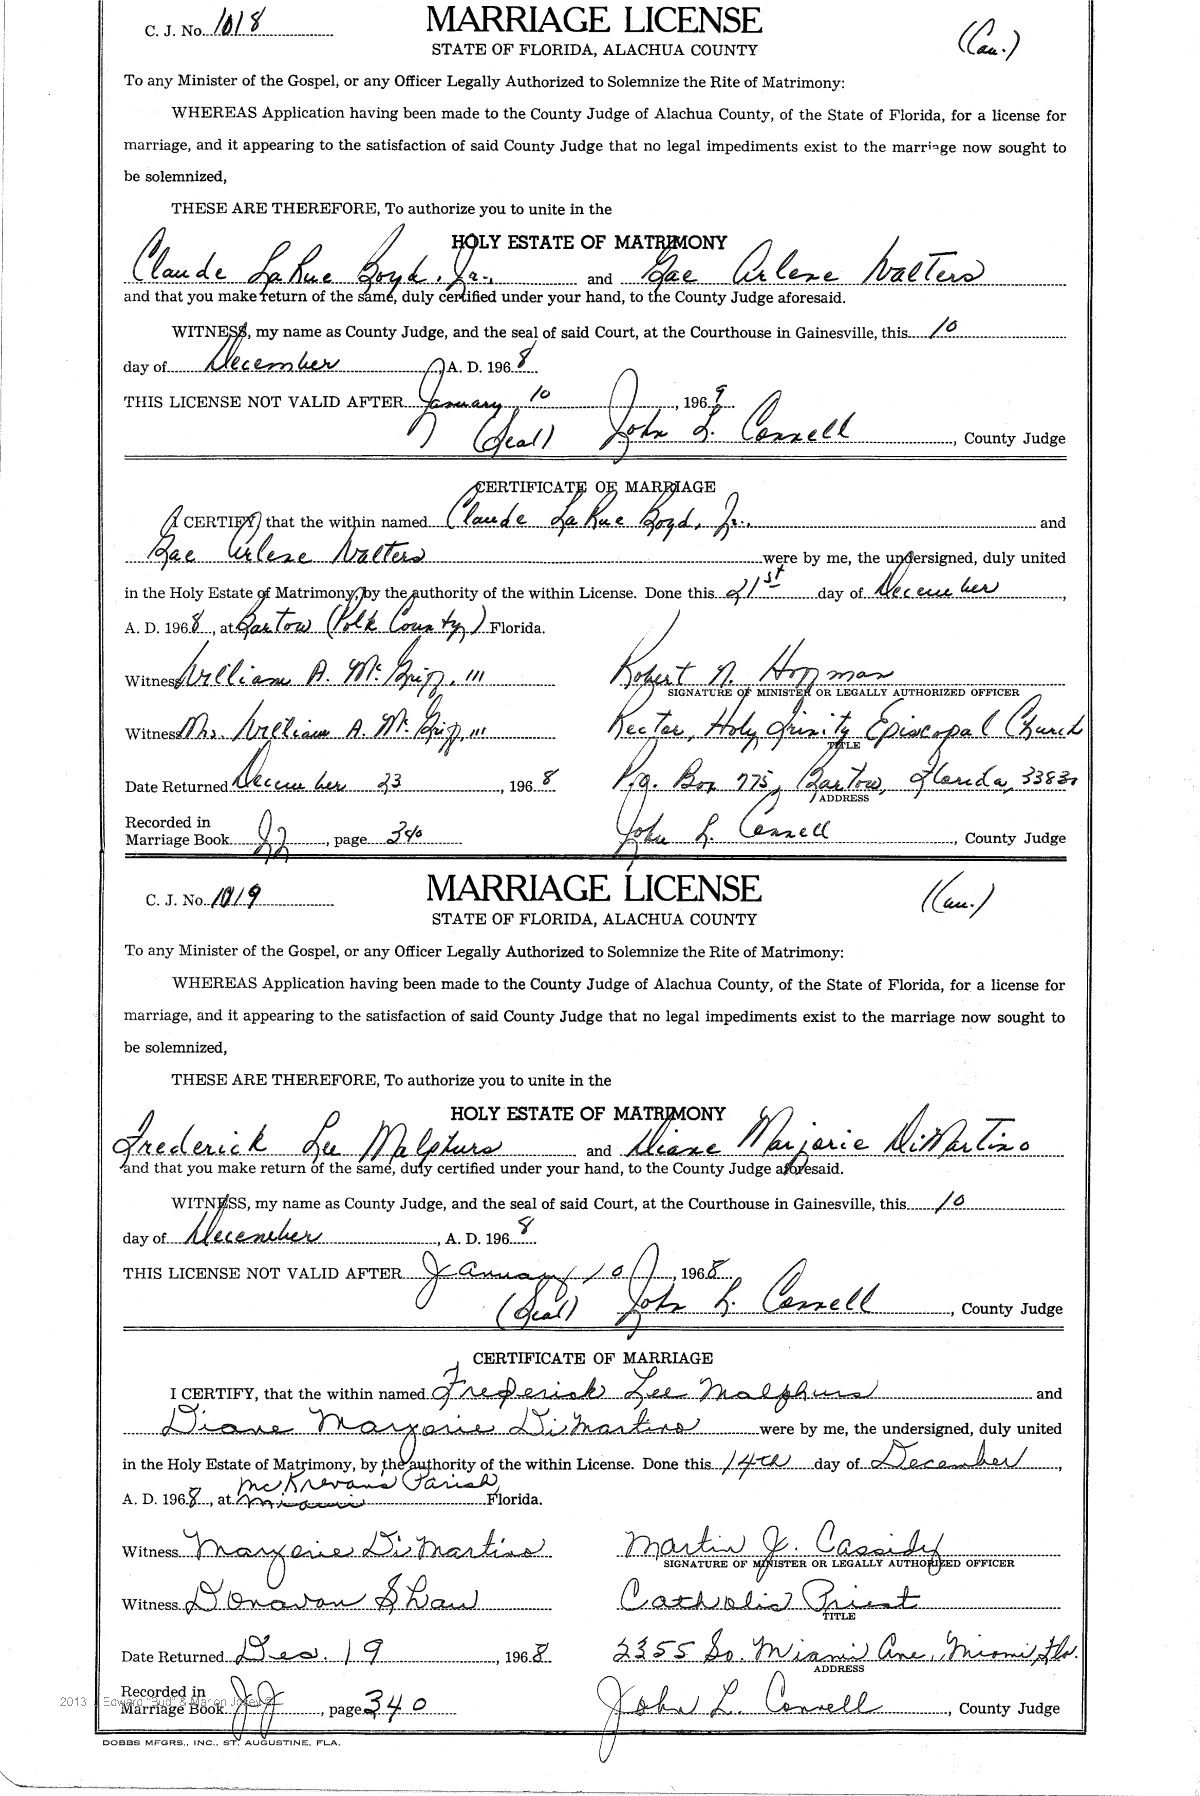 C. J. No. 1018
MARRIAGE LICENSE
STATE OF FLORIDA, ALACHUA COUNTY
(Cau.)
To any Minister of the Gospel, or any Officer Legally Authorized to Solemnize the Rite of Matrimony:
WHEREAS Application having been made to the County Judge of Alachua County, of the State of Florida, for a license for
marriage, and it appearing to the satisfaction of said County Judge that no legal impediments exist to the marriage now sought to
be solemnized,
THESE ARE THEREFORE, To authorize you to unite in the
HOLY ESTATE OF MATRIMONY
Claude LaRue Boyd, Jr., and Gae Arlene Walters
and that you make return of the same, duly certified under your hand, to the County Judge aforesaid.
WITNESS, my name as County Judge, and the seal of said Court, at the Courthouse in Gainesville, this 10
day of December, A. D. 1968
THIS LICENSE NOT VALID AFTER January 10, 1969
(Seal) John L. Connell, County Judge
CERTIFICATE OF MARRIAGE
I CERTIFY, that the within named Claude LaRue Boyd, Jr., and
Gae Arlene Walters were by me, the undersigned, duly united
in the Holy Estate of Matrimony, by the authority of the within License. Done this 21st day of December,
A. D. 1968, at Bartow (Polk County) Florida.
Witness William A. McGriff, III Robert N. Huffman
SIGNATURE OF MINISTER OR LEGALLY AUTHORIZED OFFICER
Witness Mrs. William A. McGriff, III Rector, Holy Trinity Episcopal Church
TITLE
Date Returned December 23 1968 P.O. Box 775, Bartow, Florida, 33830
ADDRESS
Recorded in
Marriage Book JJ, page 340 John L. Connell, County Judge
C. J. No. 1019
MARRIAGE LICENSE
STATE OF FLORIDA, ALACHUA COUNTY
(Cau.)
To any Minister of the Gospel, or any Officer Legally Authorized to Solemnize the Rite of Matrimony:
WHEREAS Application having been made to the County Judge of Alachua County, of the State of Florida, for a license for
marriage, and it appearing to the satisfaction of said County Judge that no legal impediments exist to the marriage now sought to
be solemnized,
THESE ARE THEREFORE, To authorize you to unite in the
HOLY ESTATE OF MATRIMONY
Frederick Lee Malphurs and Diane Marjorie DiMartino
and that you make return of the same, duly certified under your hand, to the County Judge aforesaid.
WITNESS, my name as County Judge, and the seal of said Court, at the Courthouse in Gainesville, this 10
day of December, A. D. 1968
THIS LICENSE NOT VALID AFTER January 10, 1968
(Seal) John L. Connell, County Judge
CERTIFICATE OF MARRIAGE
I CERTIFY, that the within named Frederick Lee Malphurs and
Diane Marjorie DiMartino were by me, the undersigned, duly united
in the Holy Estate of Matrimony, by the authority of the within License. Done this 14th day of December,
Parish
A. D. 1968, at Miami Florida.
Witness Marjorie DiMartino Martin J. Cassidy
SIGNATURE OF MINISTER OR LEGALLY AUTHORIZED OFFICER
Witness Donavon Shaw Catholic Priest
TITLE
Date Returned Dec. 19 1968 2355 So. Miami Ave., Miami, Fla.
ADDRESS
Recorded in
Marriage Book JJ, page 340 John L. Connell, County Judge
DOBBS MFGRS., INC., ST. AUGUSTINE, FLA.
2013 Edward "Bud" & Marion